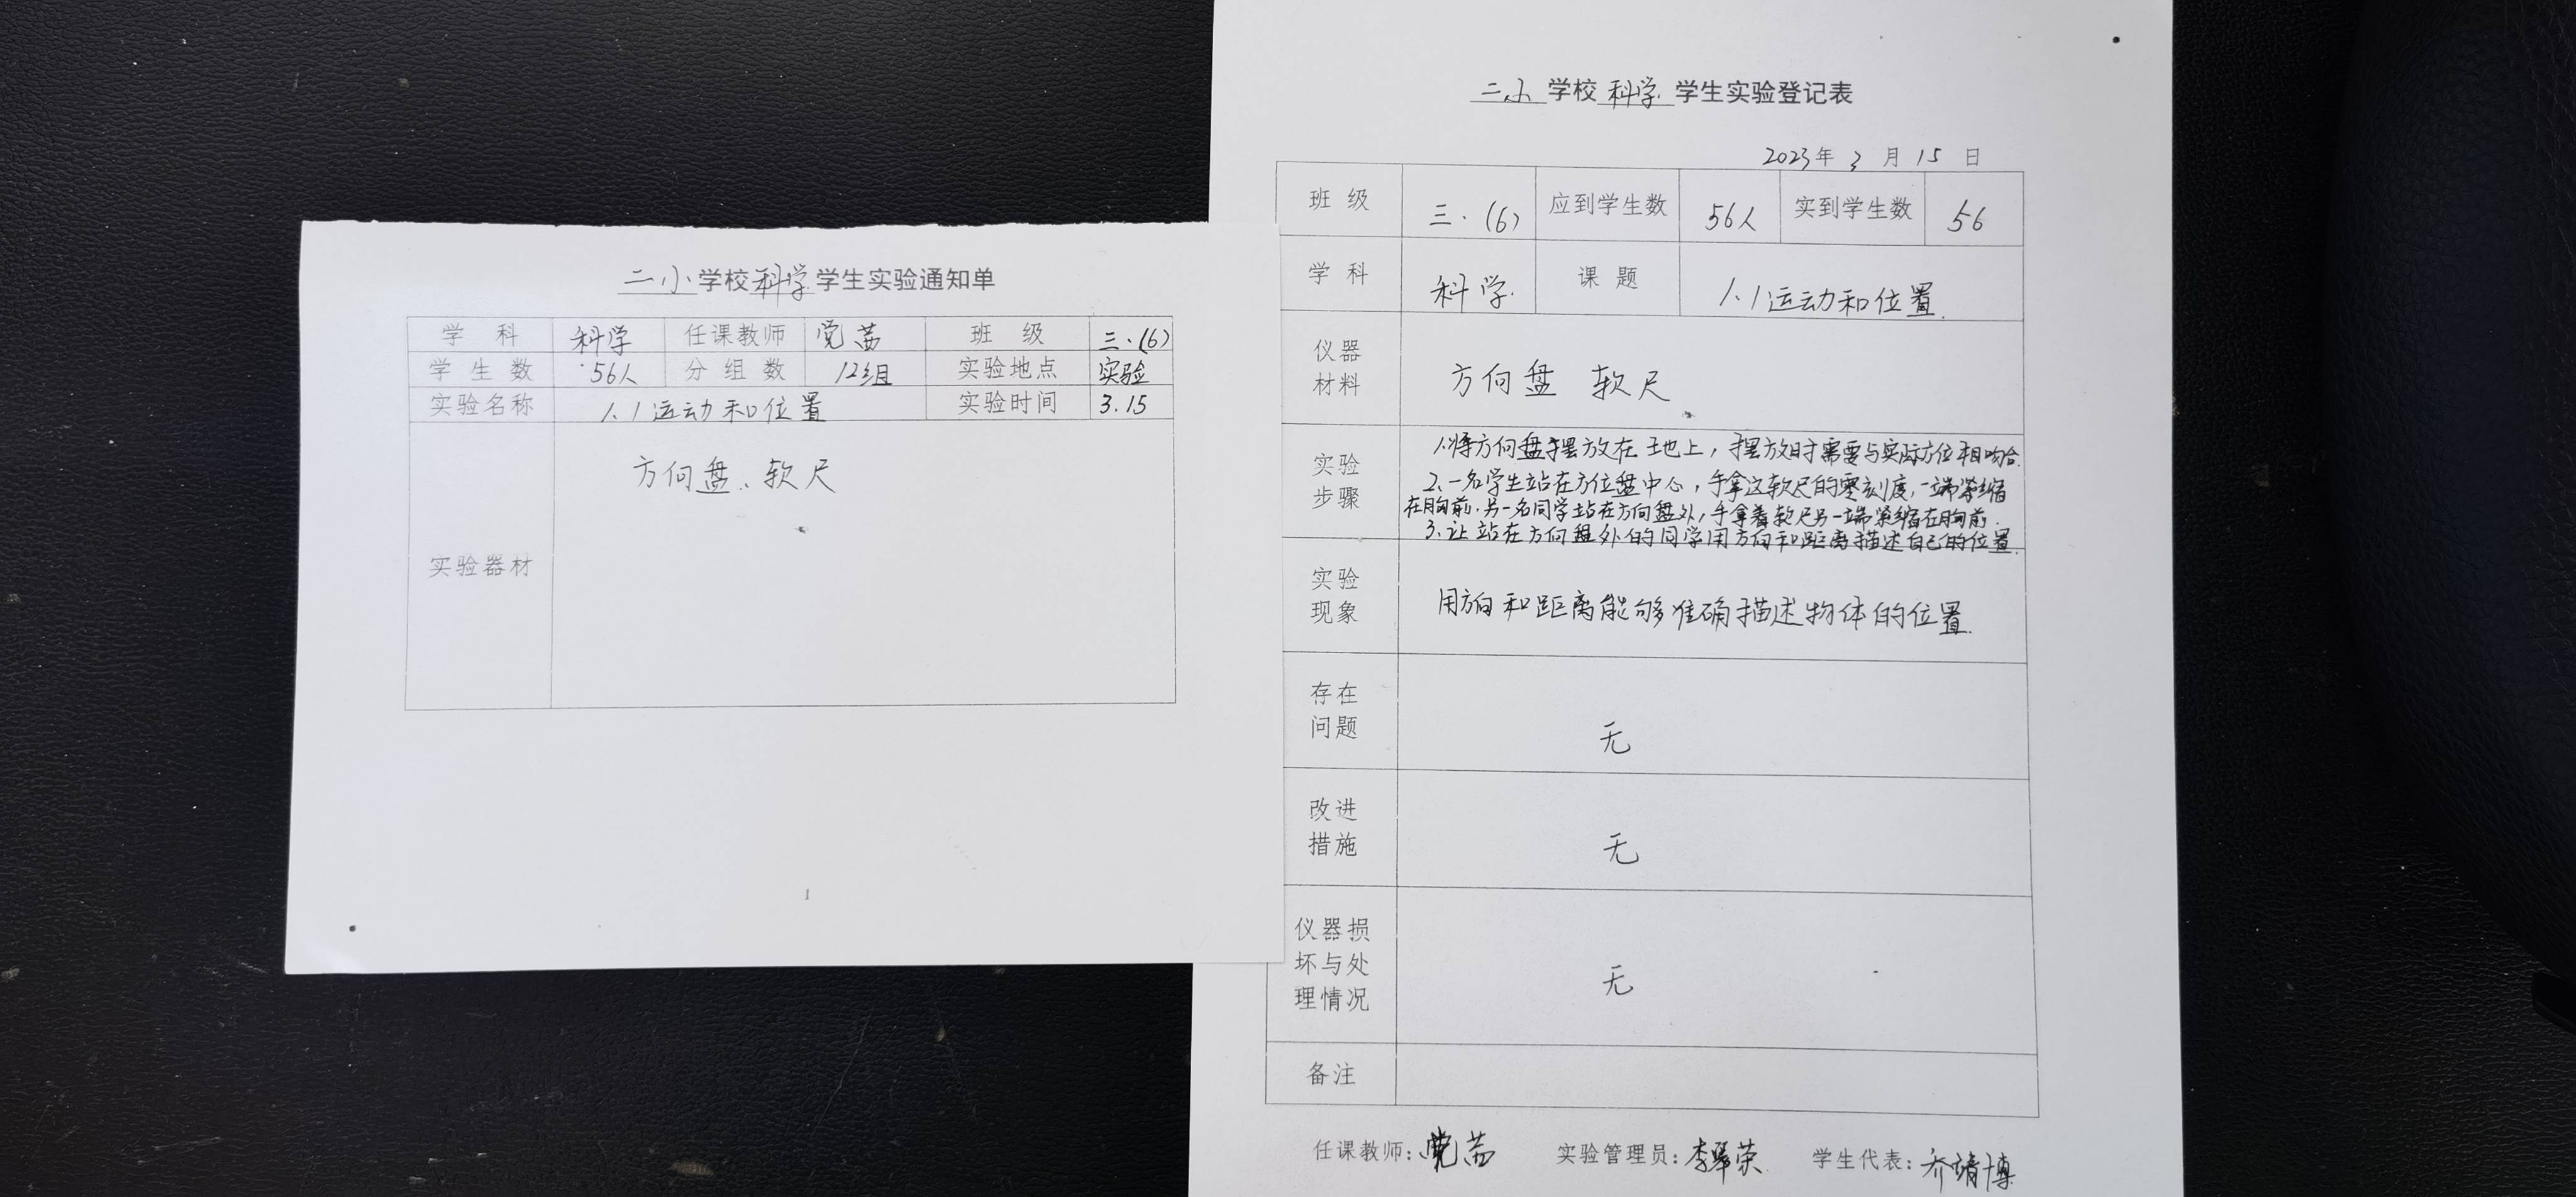 二小学校科学学生实验通知单
学科 科学 任课教师 党茜 班级 三.(6)
学生数 56人 分组数 12组 实验地点 实验
实验名称 1.1运动和位置 实验时间 3.15
实验器材 方向盘、软尺
1
二小学校科学学生实验登记表
2023年3月15日
班级 三.(6) 应到学生数 56人 实到学生数 56
学科 科学. 课题 1.1运动和位置.
仪器材料 方向盘 软尺
实验步骤
1.将方向盘摆放在地上,摆放时需要与实际方位相吻合.
2.一名学生站在方位盘中心,手拿这软尺的零刻度,一端紧缩
在胸前.另一名同学站在方向盘外,手拿着软尺另一端紧缩在胸前.
3.让站在方向盘外的同学用方向和距离描述自己的位置.
实验现象 用方向和距离能够准确描述物体的位置.
存在问题 无
改进措施 无
仪器损坏与处理情况 无
备注
任课教师:党茜 实验管理员:李翠荣 学生代表:乔靖博